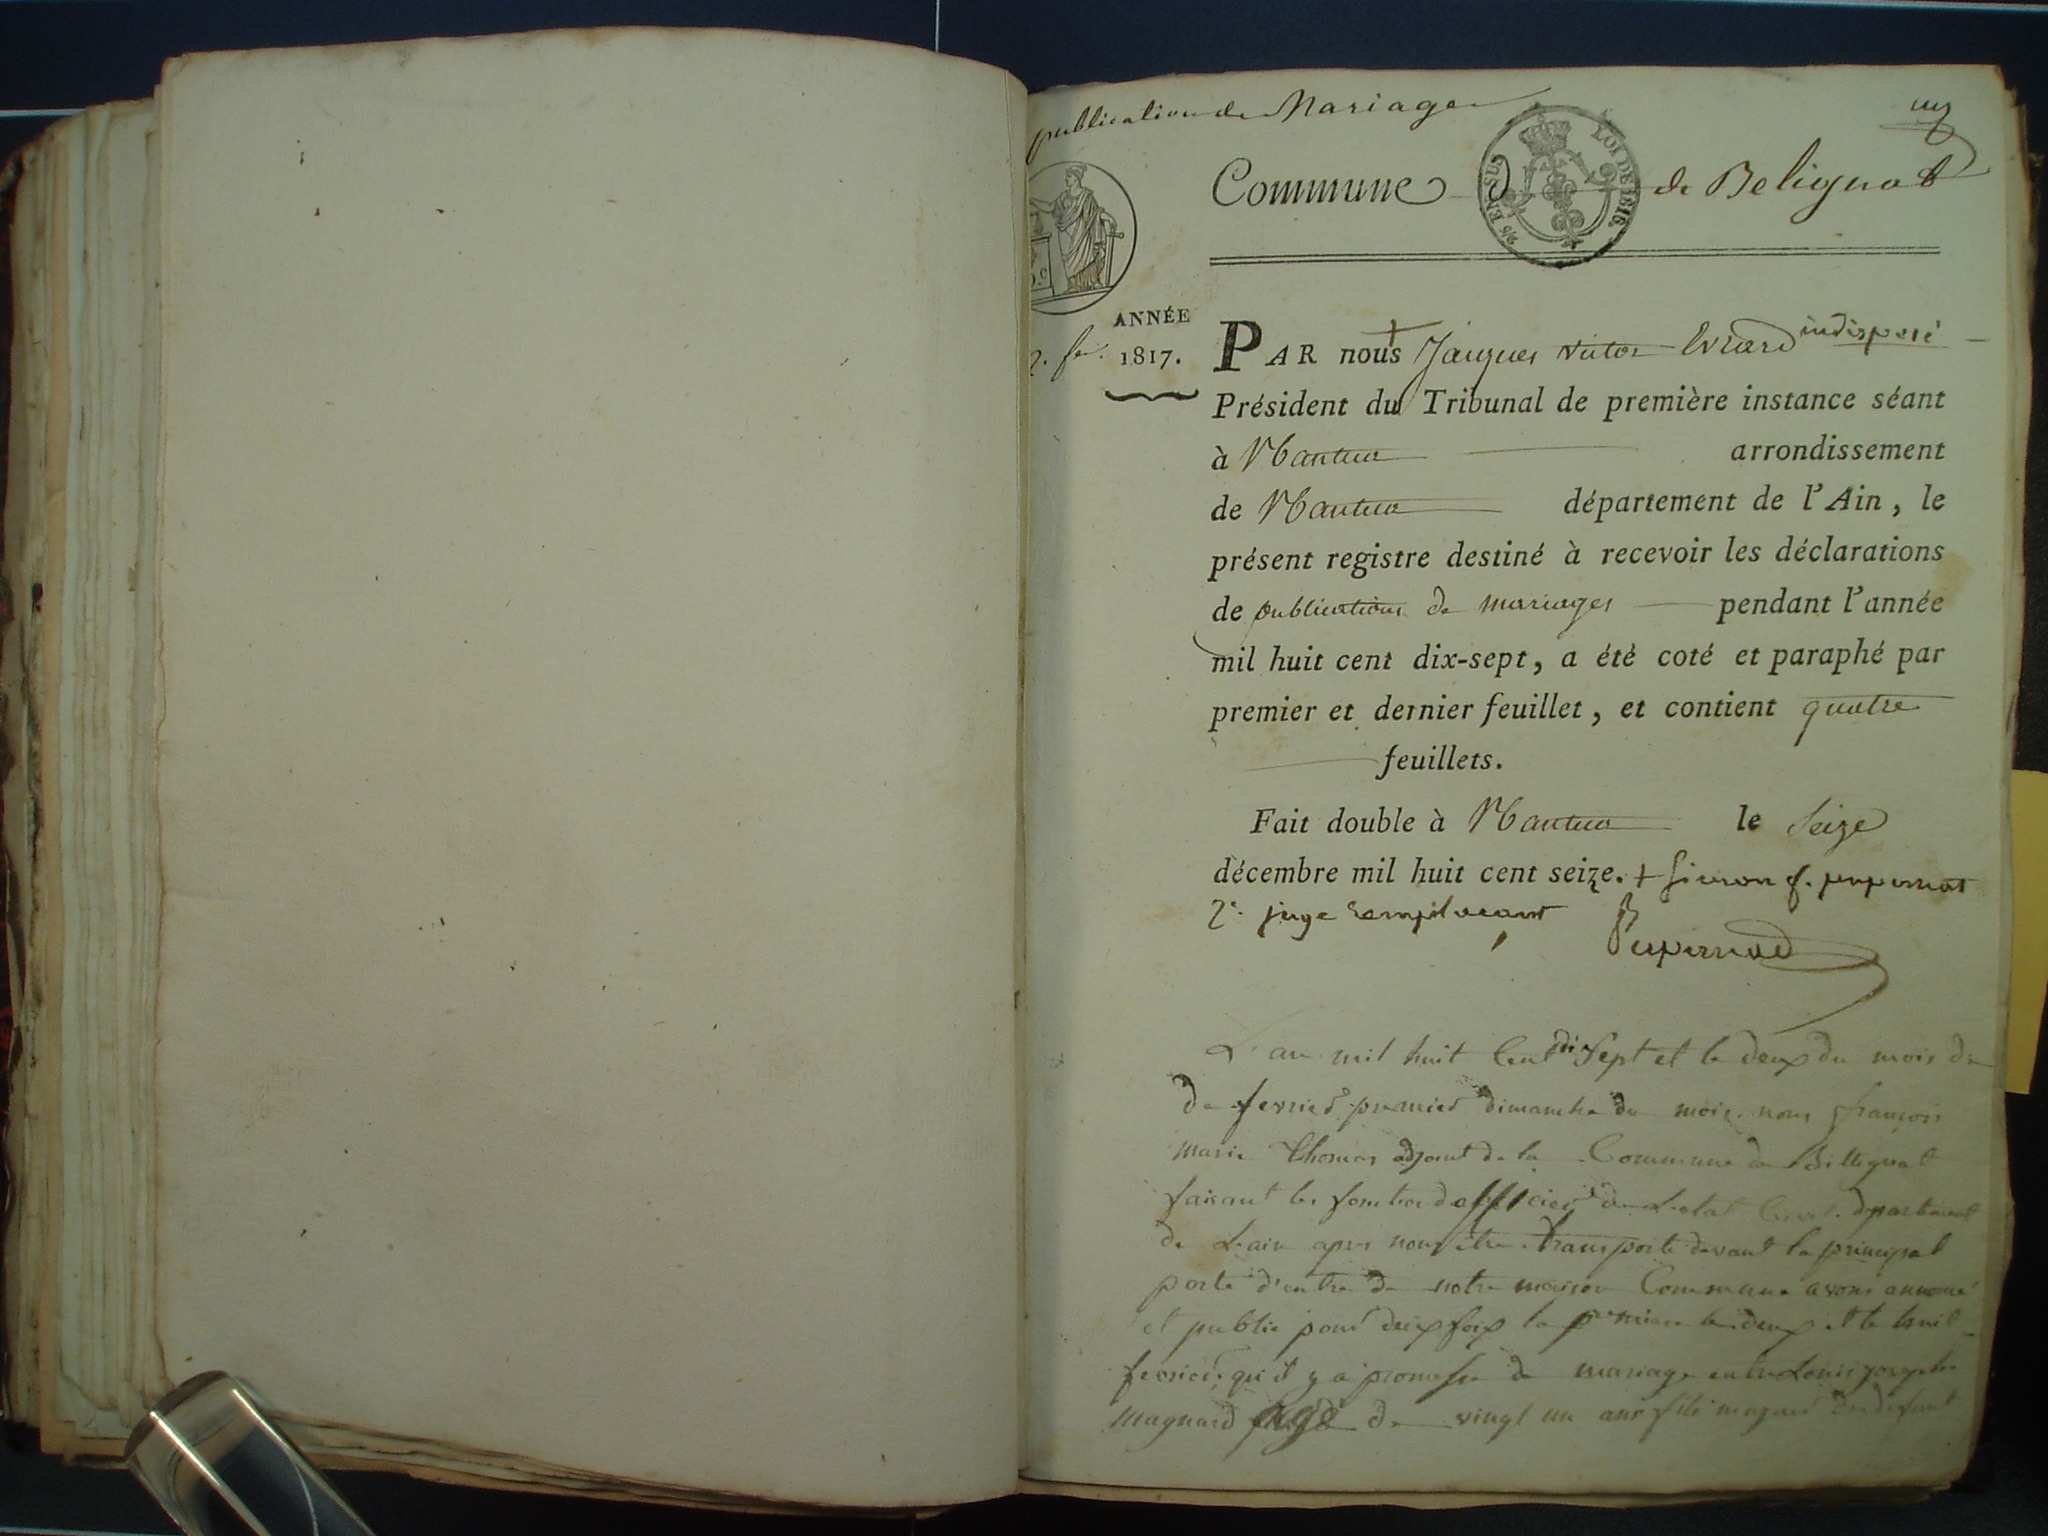 publication de Mariage
iiij
Commune d de Belignat
LOI DE 1816.
EN SUS
ANNÉE
1817.
PAR nous Jacques Victor Evrard indisposé
Président du Tribunal de première instance séant
à Nantua arrondissement
de Nantua département de l'Ain, le
présent registre destiné à recevoir les déclarations
de publications de mariages pendant l'année
mil huit cent dix-sept, a été coté et paraphé par
premier et dernier feuillet, et contient quatre
feuillets.
Fait double à Nantua le Seize
décembre mil huit cent seize. +
2e. juge remplacant
L'an mil huit Cent dix Sept et le deux du mois de
de fevrier premier dimanche du mois nous françois
marie thomas adjoint de la Commune de Billignat
faisant les fonction dofficier de Letat Civil departement
de Lain apres nous être transporte devant la principal
porte d'entre de notre maison Commune avons annoncé
et publie pour deux fois la premiere le deux et le huit
fevrier qu'il y a promesse de mariage entre Louis joseph
magnard agé de vingt un ans fils du defunt